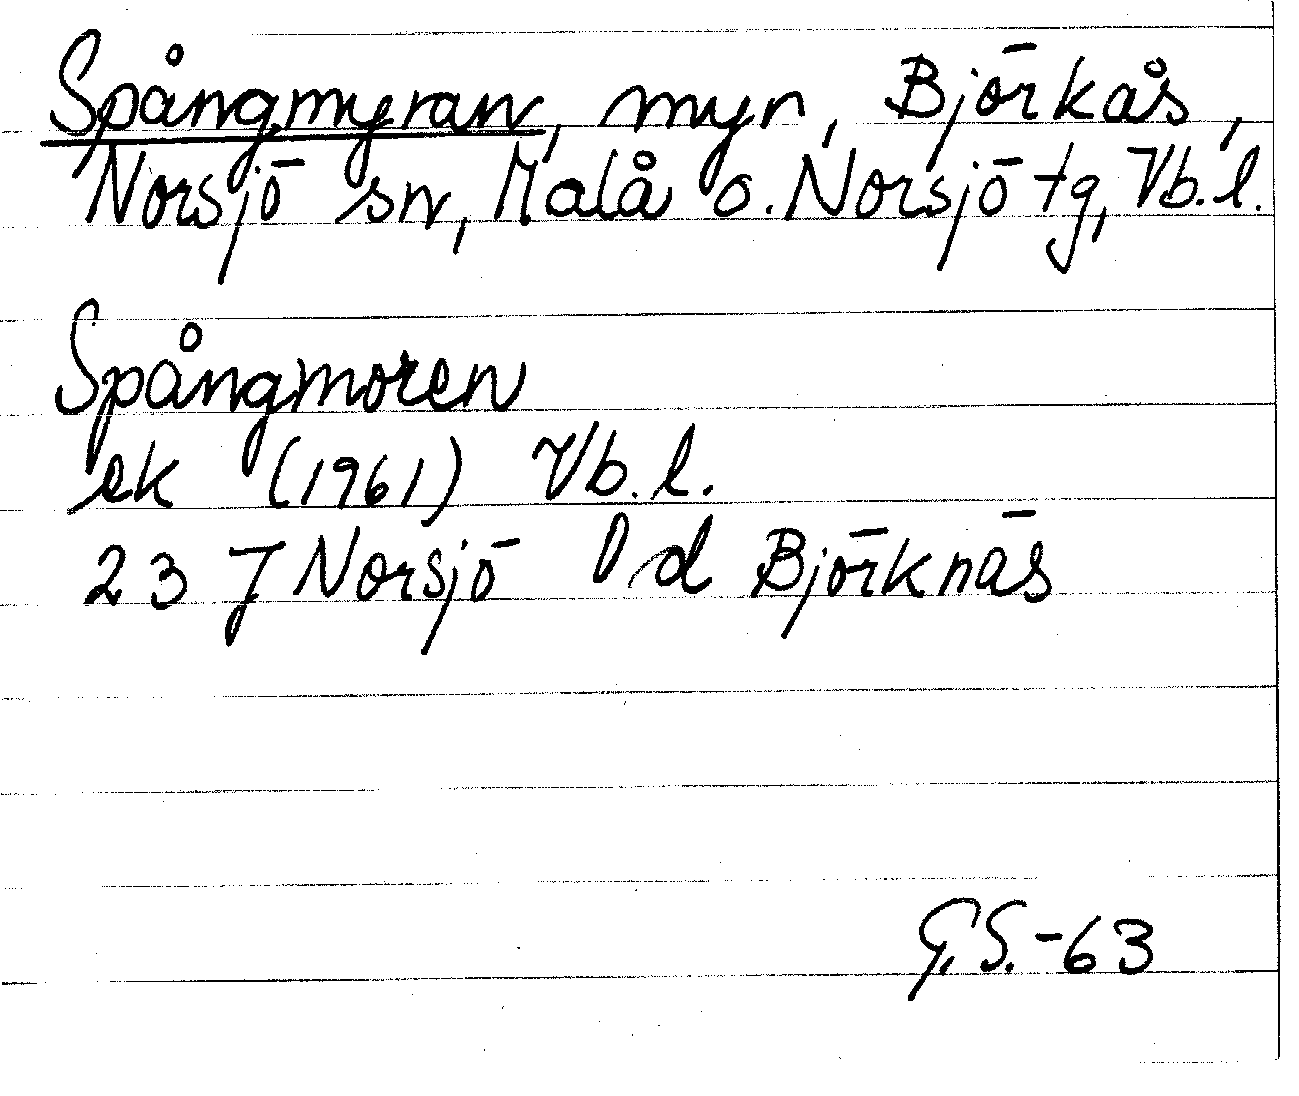 Spångmyran, myr, Björkås,
Norsjö sn, Malå o. Norsjö tg, Vb. l.
Spångmoren
ek (1961) Vb. l.
23 J Norsjö 0 d Björknäs
G.S.-63